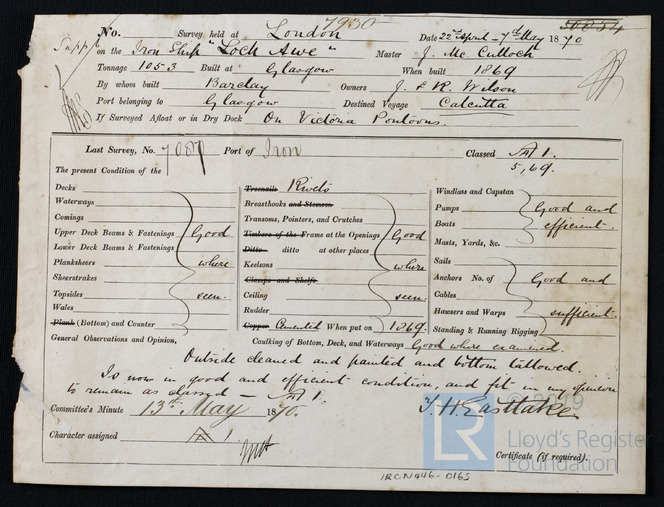 7930
No. Survey held at London Date 22nd April - 7th May 1870
on the Iron Ship "Loch Awe" Master J. McCulloch
Tonnage 1053 Built at Glasgow When built 1869
By whom built Barclay Owners J. & R. Wilson
Port belonging to Glasgow Destined Voyage Calcutta
If Surveyed Afloat or in Dry Dock On Victoria Pontoons.
Last Survey, No. 7087 Port of Iron Classed A 1.
5,69.
The present Condition of the
Decks
Waterways
Comings
Upper Deck Beams & Fastenings Good
Lower Deck Beams & Fastenings
Planksheers where
Sheerstrakes
Topsides seen.
Wales
Plank (Bottom) and Counter
Treenails Rivets
Breasthooks and Stemson
Transoms, Pointers, and Crutches
Timbers of the Frame at the Openings Good
Ditto ditto at other places
Keelsons where
Clamps and Shelfs
Ceiling seen.
Rudder
Copper Cemented When put on 1869.
Windlass and Capstan
Pumps Good and
Boats efficient.
Masts, Yards, &c.
Sails
Anchors No. of Good and
Cables
Hawsers and Warps sufficient.
Standing & Running Rigging
General Observations and Opinion, Caulking of Bottom, Deck, and Waterways Good where examined.
Outside cleaned and painted and bottom tallowed.
Is now in good and efficient condition, and fit in my opinion
to remain as classed - A 1.
Committee's Minute 13th May 1870.
Character assigned A 1
Certificate (if required).
© 2019
LR Lloyd's Register
Foundation
IRON446-0165